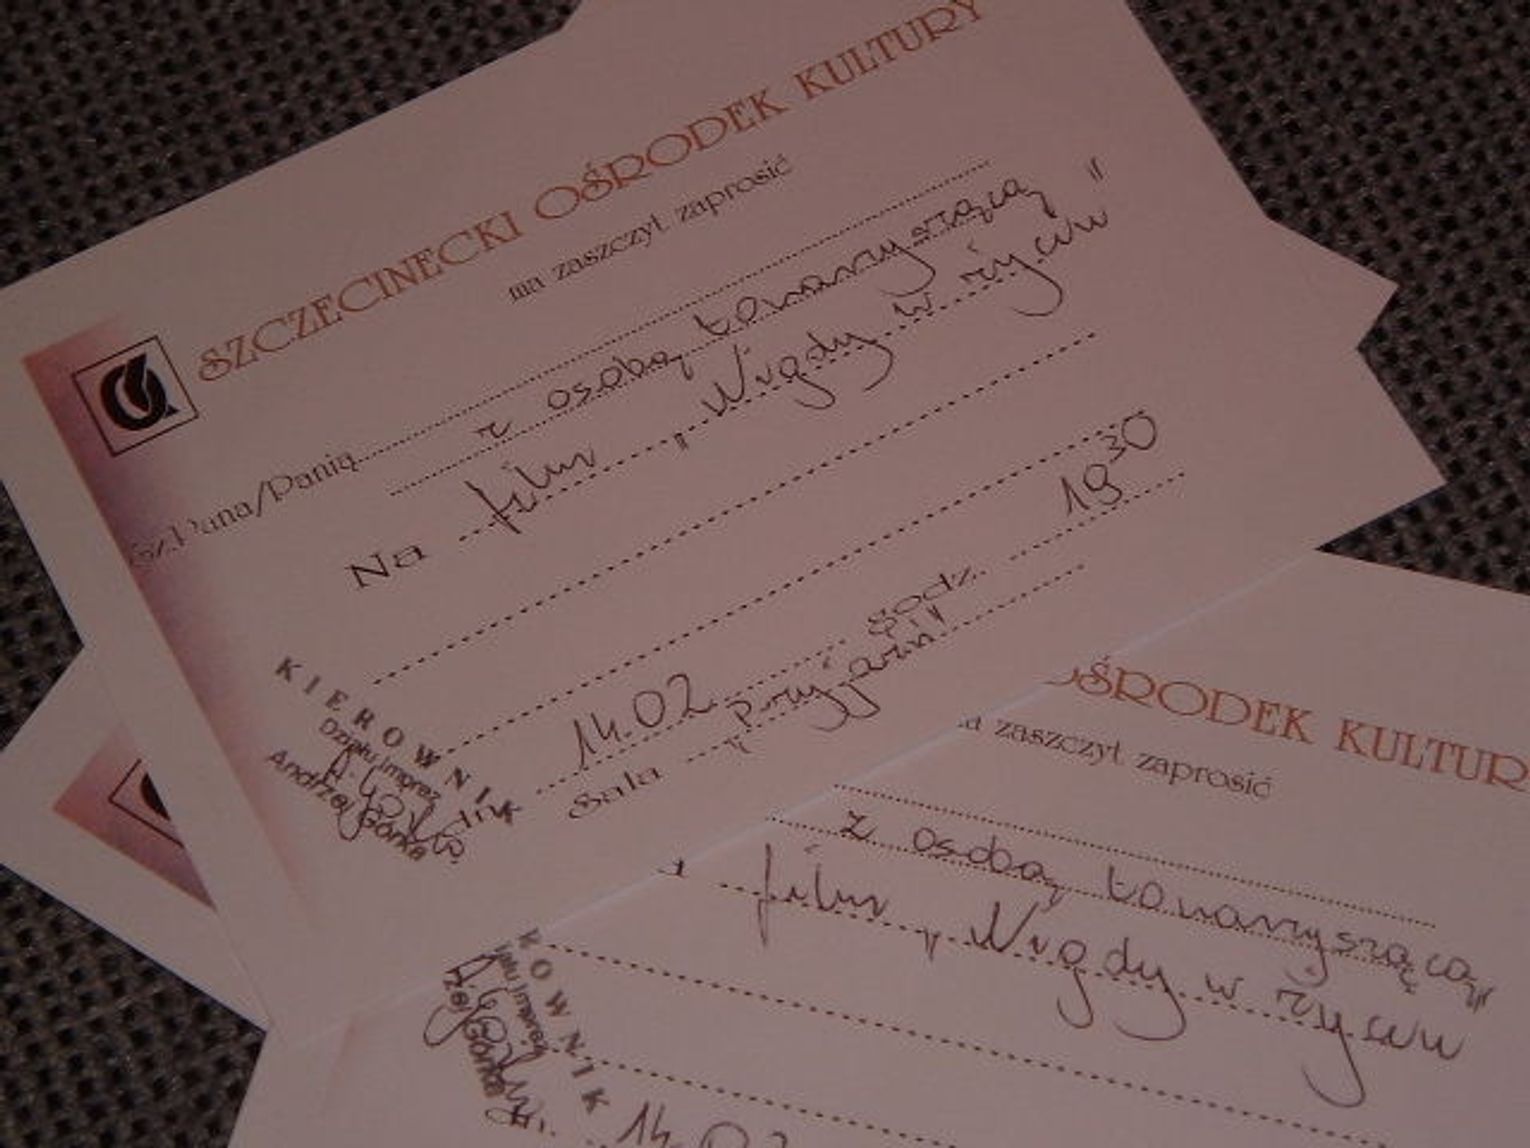 SZCZECINECKI OŚRODEK KULTURY
ma zaszczyt zaprosić
Sz.Pana/Panią
z osobą towarzyszącą
Na film „Nigdy w życiu"
14.02 godz. 19 30
Sala „przyjaźni"
KIEROWNIK
Działu Imprez
Andrzej Górka
OŚRODEK KULTUR
zaszczyt zaprosić
z osobą towarzyszącą
film „Nigdy w życiu"
ROWNIK
Imprez
Górka
14.02